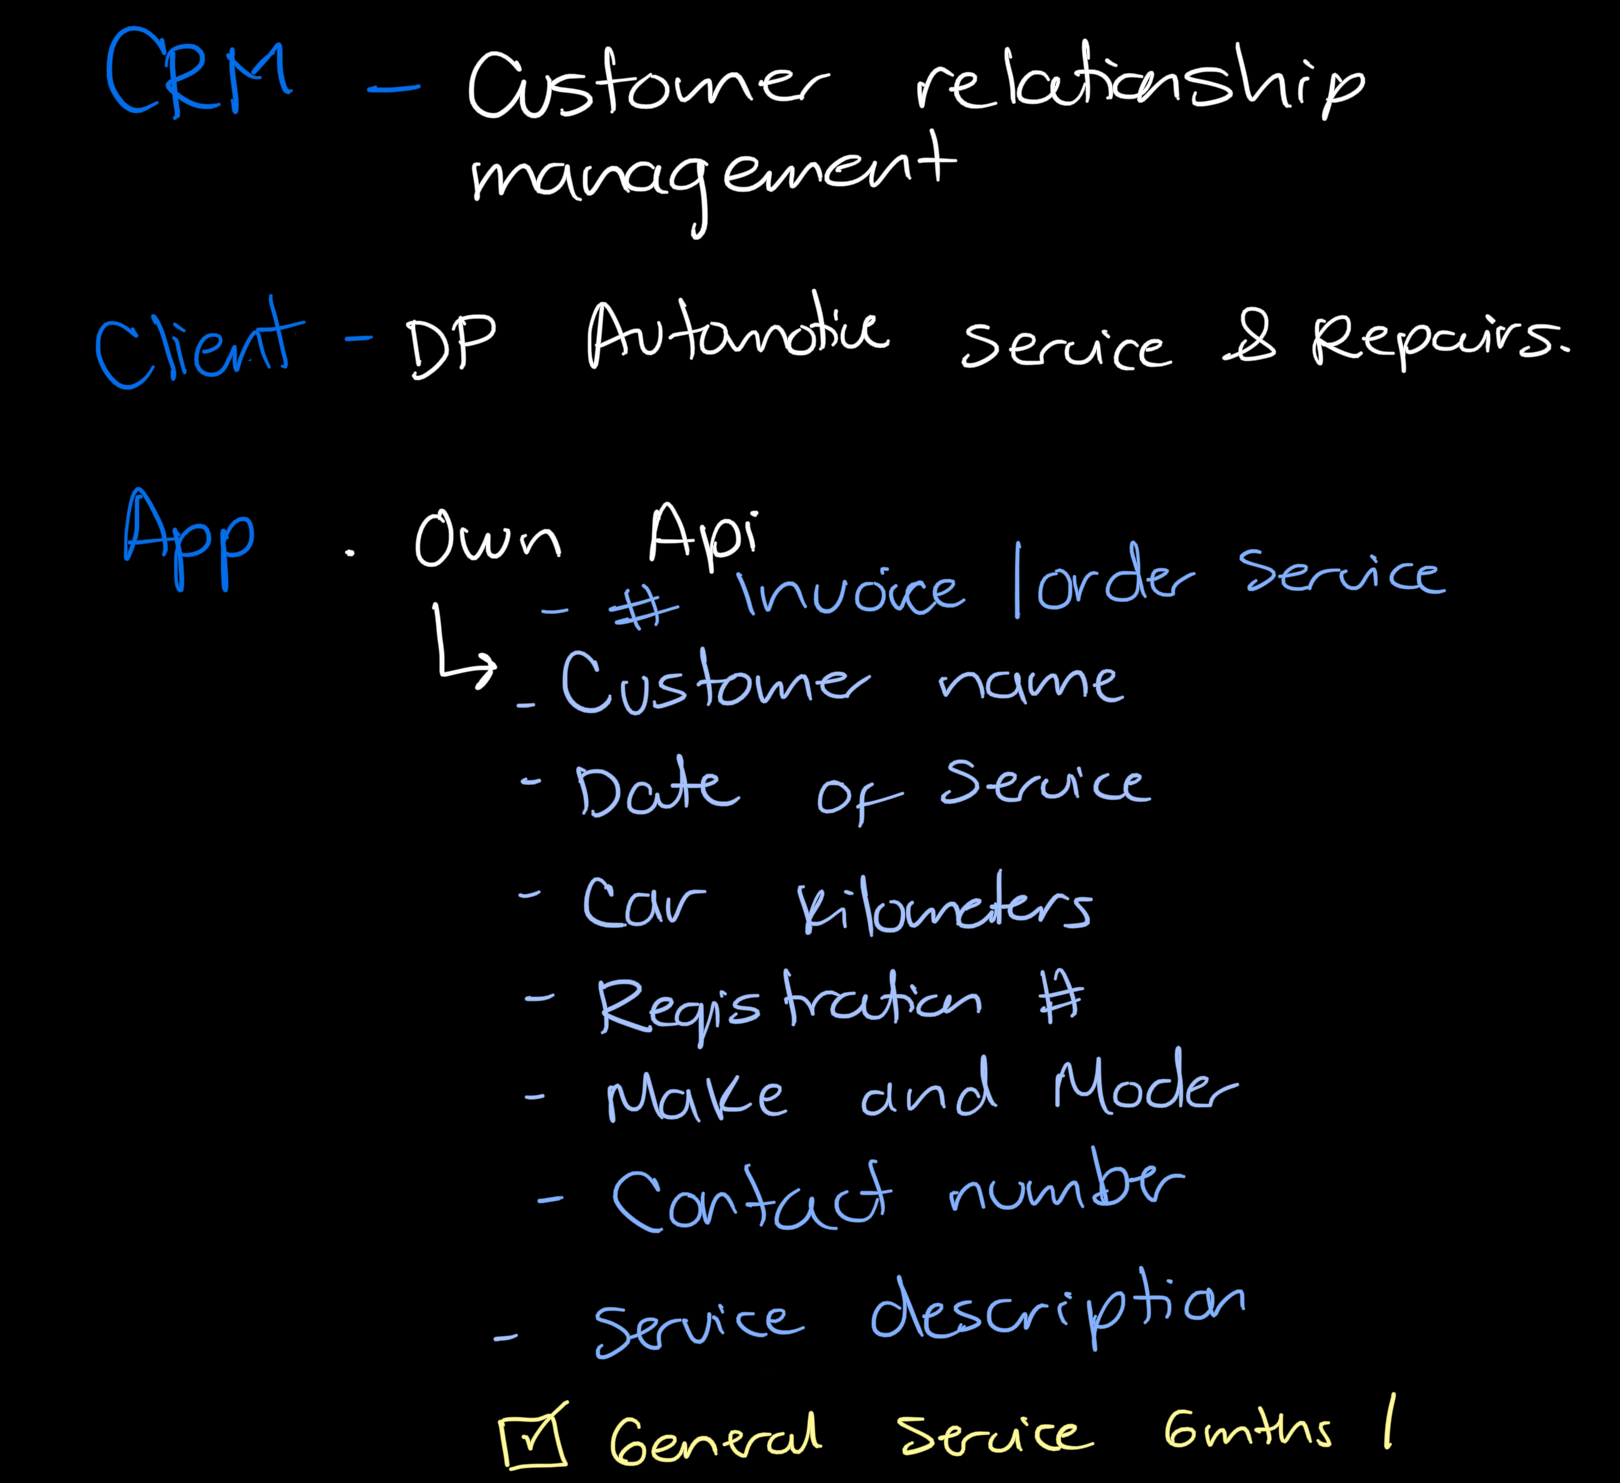 CRM - Customer relationship
management
Client - DP Automotive Service & Repairs.
App . Own Api
- # Invoice / order service
- Customer name
- Date of Service
- Car kilometers
- Registration #
- Make and Model
- Contact number
- Service description
☑ General Service 6mths /